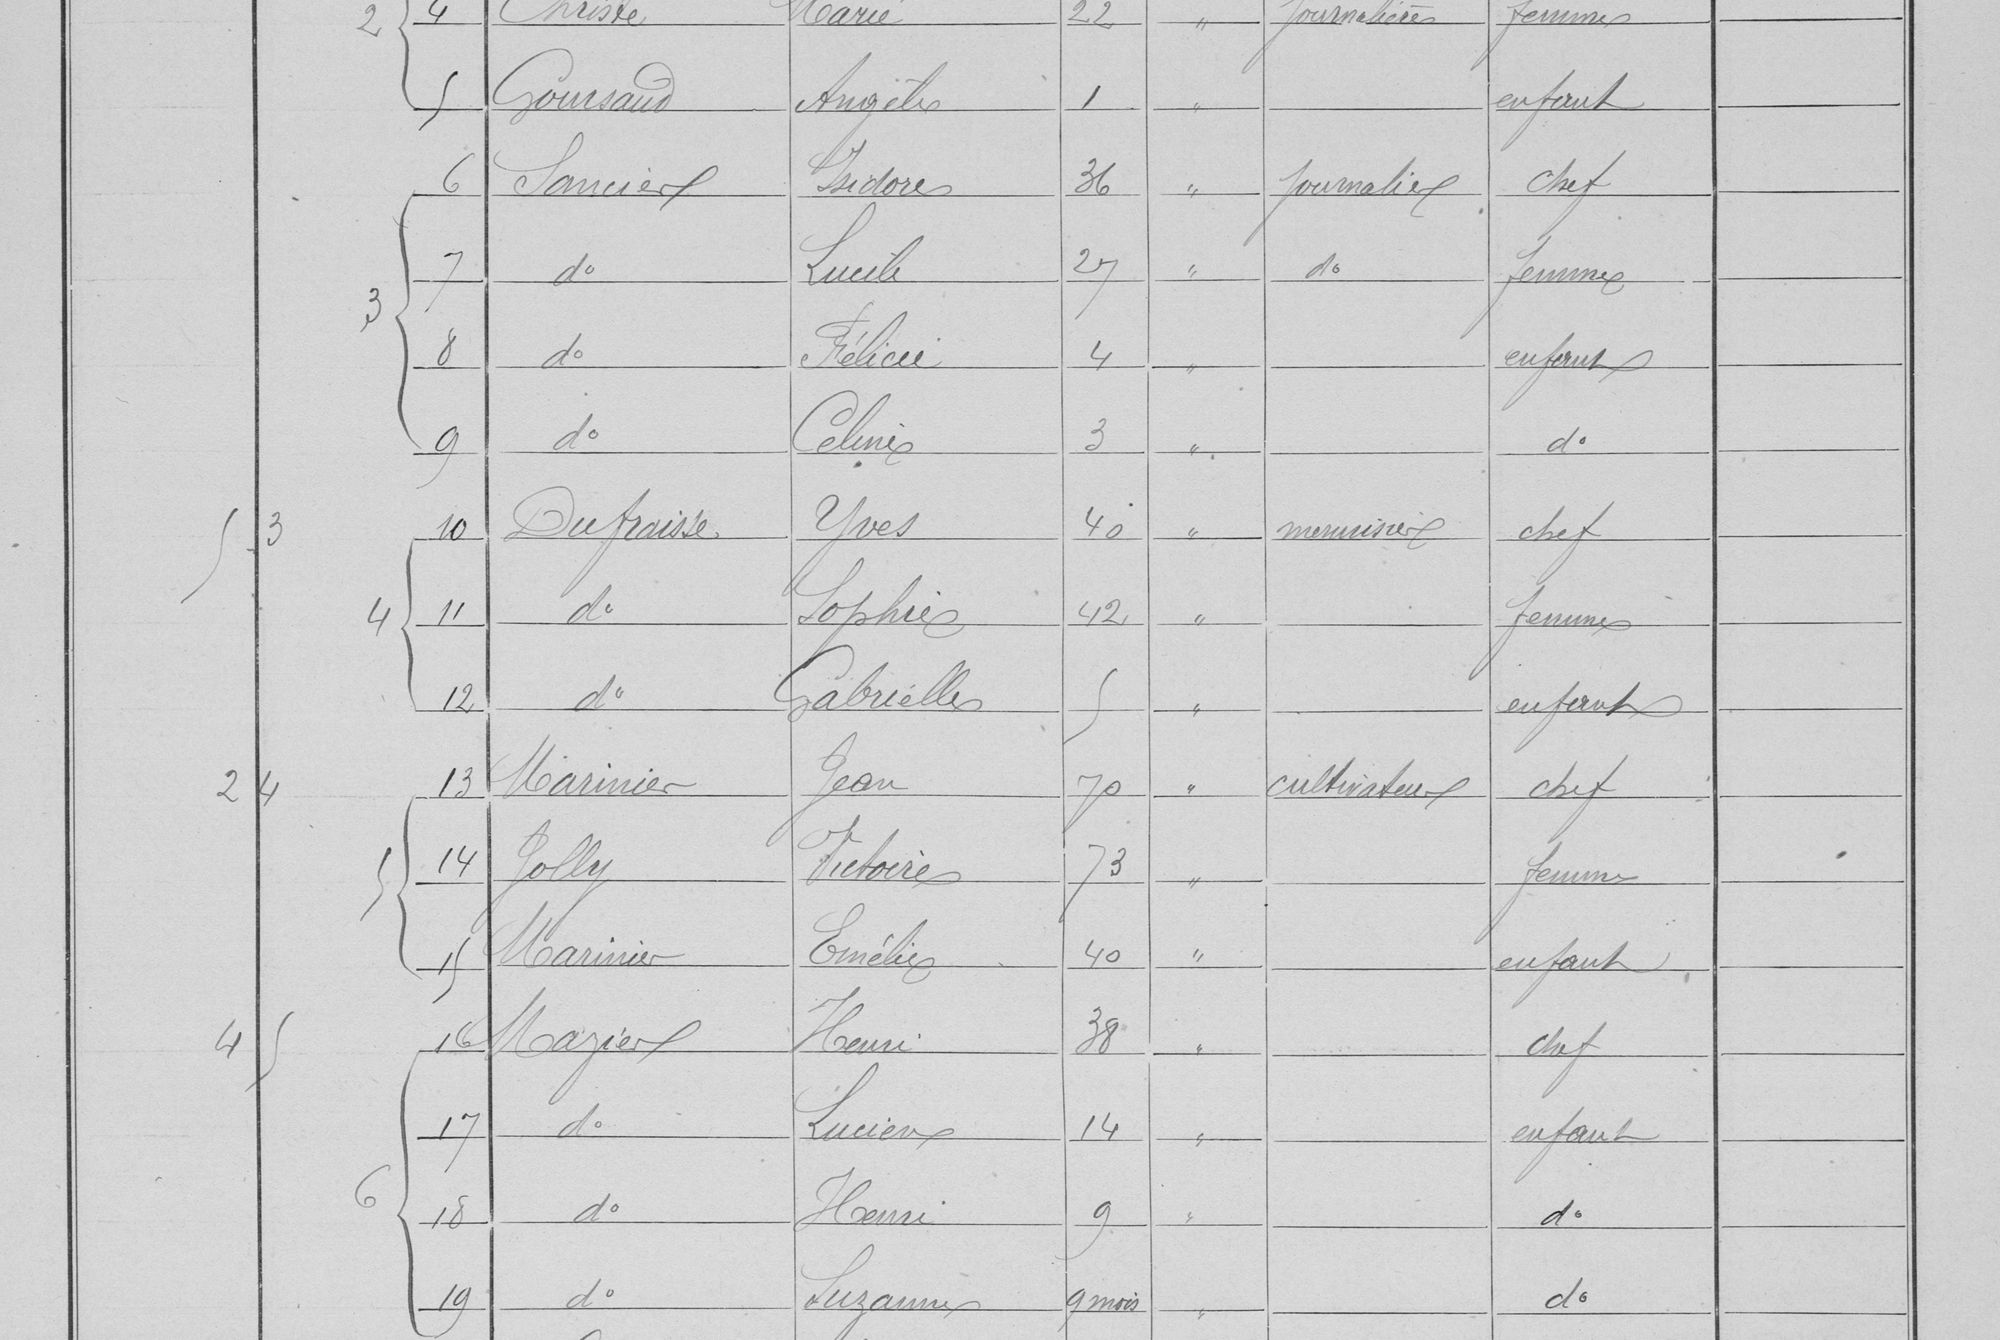 2 4 Christe Marie 22 " journalière femme
5 Goursaud Angèle 1 " enfant
6 Sancier Isidore 36 " journalier chef
7 do Lucile 27 " do femme
3
8 do Félicie 4 " enfant
9 do Celine 3 " do
5 3 10 Dufraisse Yves 40 " menuisier chef
4 11 do Sophie 42 " femme
12 do Gabrielle 5 " enfant
2 4 13 Marinier Jean 70 " cultivateur chef
5 14 Jolly Victoire 73 " femme
15 Marinier Emélie 40 " enfant
4 5 16 Mazier Henri 38 " chef
17 do Lucien 14 " enfant
6 18 do Henri 9 " do
19 do Suzanne 9 mois " do